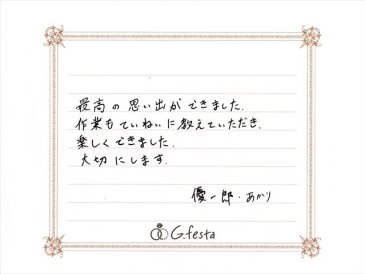 最高の思い出ができました.
作業もていねいに教えていただき.
楽しくできました.
大切にします.
優一郎・あかり
G.festa